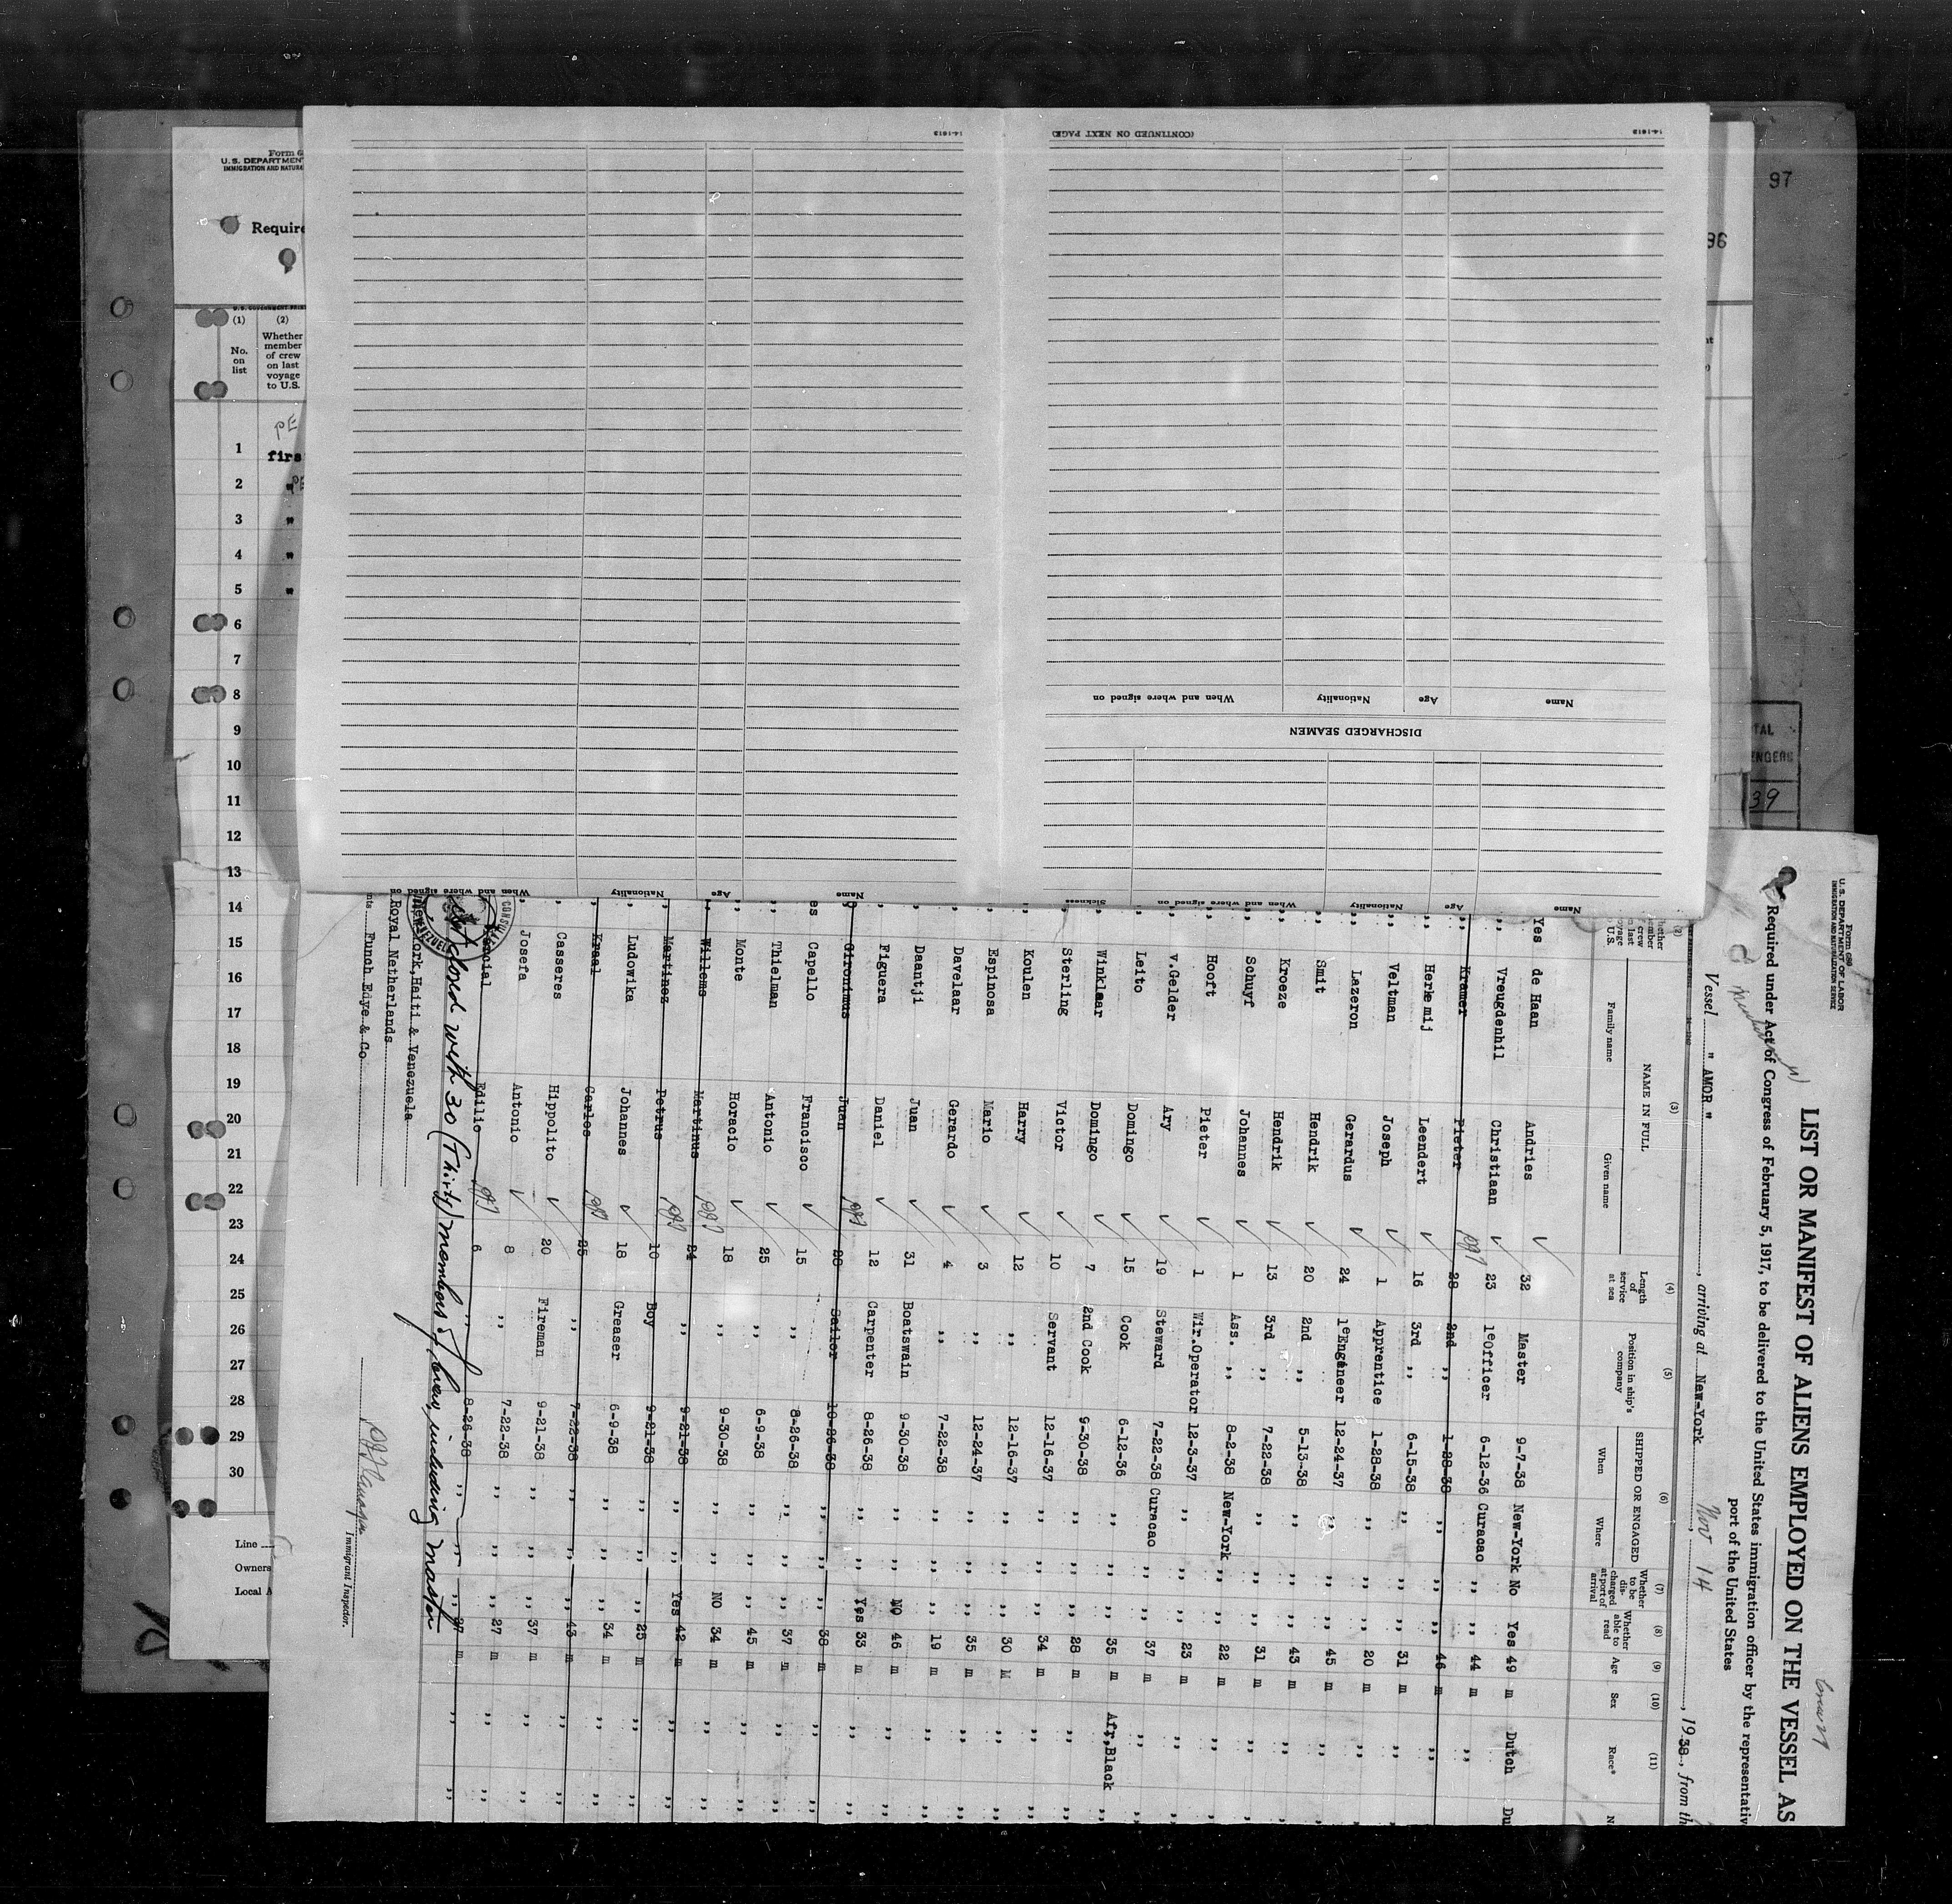 97
96
Form 6
U.S. DEPARTMENT
IMMIGRATION AND NATURA
Require
(1) (2)
No. on list
Whether member of crew on last voyage to U.S.
PE
1 firs
2 "
3 "
4 "
5 "
6
7
8
9
10
11
12
13
14
15
16
17
18
19
20
21
22
23
24
25
26
27
28
29
30
Line
Owners
Local A
TAL
ENGERS
39
14-1613
(CONTINUED ON NEXT PAGE)
14-1613
Name Age Nationality When and where signed on
DISCHARGED SEAMEN
Name Age Nationality When and where signed on Sickness
Name Age Nationality When and where signed on
Form 689
U.S. DEPARTMENT OF LABOR
IMMIGRATION AND NATURALIZATION SERVICE
LIST OR MANIFEST OF ALIENS EMPLOYED ON THE VESSEL AS
Required under Act of Congress of February 5, 1917, to be delivered to the United States immigration officer by the representativ
port of the United States
Vessel " AMOR ", arriving at New-York, Nov 14, 1938, from th
(3) (4) (5) (6) (7) (8) (9) (10) (11)
NAME IN FULL
Family name Given name
Length of service at sea
Position in ship's company
SHIPPED OR ENGAGED
When Where
Whether to be discharged at port of arrival
Whether able to read
Age Sex Race*
Yes de Haan Andries 32 Master 9-7-38 New-York No Yes 49 m Dutch Du
,, Vreugdenhil Christiaan 23 1eOfficer 6-12-36 Curacao ,, ,, 44 m ,,
,, Kramer Pieter 28 2nd ,, 1-28-38 ,, ,, ,, 46 m ,,
Herkemij Leendert 16 3rd ,, 6-15-38 ,, ,, ,, 31 m ,,
Veltman Joseph 1 Apprentice 1-28-38 ,, ,, ,, 20 m ,,
Lazeron Gerardus 24 1eEngineer 12-24-37 ,, ,, ,, 45 m ,,
Smit Hendrik 20 2nd ,, 5-13-38 ,, ,, ,, 43 m ,,
Kroeze Hendrik 13 3rd ,, 7-22-38 ,, ,, ,, 31 m ,,
Schuyf Johannes 1 Ass. ,, 8-2-38 New-York ,, ,, 22 m ,,
Hooft Pieter 1 Wir.Operator 12-3-37 ,, ,, ,, 23 m ,,
v.Gelder Ary 19 Steward 7-22-38 Curacao ,, ,, 37 m ,,
Leito Domingo 15 Cook 6-12-36 ,, ,, ,, 35 m Afr,Black ,,
Winklaar Domingo 7 2nd Cook 9-30-38 ,, ,, ,, 28 m ,, ,,
Sterling Victor 10 Servant 12-16-37 ,, ,, ,, 34 m ,, ,,
Koulen Harry 12 ,, 12-16-37 ,, ,, ,, 30 M ,, ,,
Espinosa Mario 3 ,, 12-24-37 ,, ,, ,, 35 m ,, ,,
Davelaar Gerardo 4 ,, 7-22-38 ,, ,, ,, 19 m ,, ,,
Daantji Juan 31 Boatswain 9-30-38 ,, ,, NO 46 m ,, ,,
Figuera Daniel 12 Carpenter 8-26-38 ,, ,, Yes 33 m ,, ,,
Gironimus Juan 20 Sailor 10-26-38 ,, ,, ,, 38 m ,, ,,
es Capello Francisco 15 ,, 8-26-38 ,, ,, ,, 37 m ,, ,,
,, Thielman Antonio 25 ,, 6-9-38 ,, ,, ,, 45 m ,, ,,
,, Monte Horacio 18 ,, 9-30-38 ,, ,, NO 34 m ,, ,,
,, Willems Martinus 24 ,, 9-21-38 ,, ,, Yes 42 m ,, ,,
,, Martinez Petrus 10 Boy 9-21-38 ,, ,, ,, 25 m ,, ,,
,, Ludowika Johannes 18 Greaser 6-9-38 ,, ,, ,, 34 m ,, ,,
,, Kraal Carlos 25 ,, 7-22-38 ,, ,, ,, 43 m ,, ,,
,, Casseres Hippolito 20 Fireman 9-21-38 ,, ,, ,, 37 m ,, ,,
,, Josefa Antonio 8 ,, 7-22-38 ,, ,, ,, 27 m ,, ,,
Edilio 6 ,, 8-26-38 ,, ,, ,, 27 m ,, ,,
closed with 30 (Thirty) members of crew, including master
New York, Haiti & Venezuela
Royal Netherlands
nts Funch Edye & Co.
Immigrant Inspector.